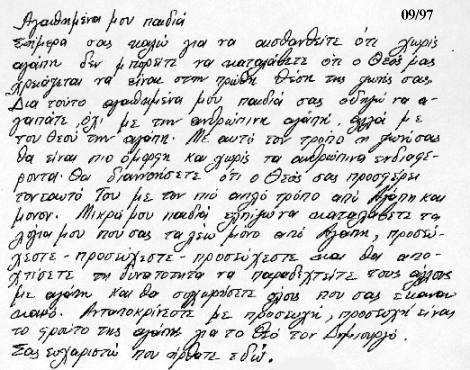 09/97
Αγαπημένα μου παιδιά
Σήμερα σας καλώ για να αισθανθείτε ότι χωρίς
αγάπη δεν μπορείτε να καταλάβετε ότι ο Θεός μας
χρειάζεται να είναι στην πρώτη θέση της ζωής σας.
Δια τούτο αγαπημένα μου παιδιά σας οδηγώ να α-
γαπάτε όχι με την ανθρώπινη αγάπη, αλλά με
του Θεού την αγάπη. Με αυτό τον τρόπο η ζωή σας
θα είναι πιο όμορφη και χωρίς τα ανθρώπινα ενδιαφέ-
ροντα. Θα διαννοήσετε ότι ο Θεός σας προσφέρει
τον εαυτό Του με τον πιό απλό τρόπο από Αγάπη και
μονον. Μικρά μου παιδιά ελπίζω να καταλάβετε τα
λόγια μου που σας τα λέω μόνο από Αγάπη, προσεύ-
χεστε - προσεύχεστε - προσεύχεστε και θα απο-
χτίσετε τη δυνατότητα να παραδεχτείτε τους άλλους
με αγάπη και θα συγχωρήσετε όλους που σας έκαναν
κακό. Ανταποκρίνεστε με προσευχή, προσευχή είναι
το φρούτο της αγάπης για το Θεό τον Δημιουργό.
Σας ευχαριστώ που ήρθατε εδώ.